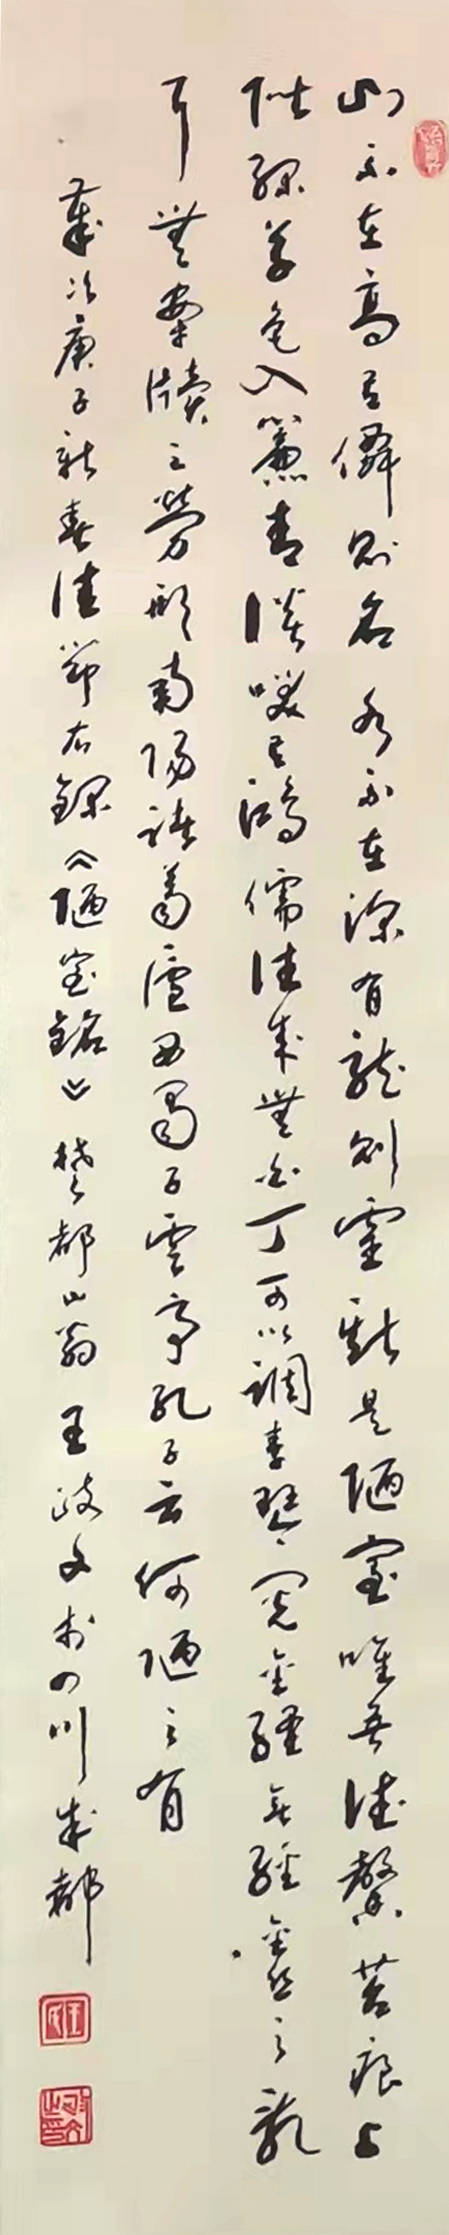 山不在高有僊则名水不在深有龍则靈斯是陋室唯吾德馨苔痕上
阶绿草色入簾青談笑有鴻儒往来無白丁可以調素琴閱金經無
耳無案牘之勞形南陽諸葛廬西蜀子雲亭孔子云何陋之有
歲次庚子新春佳節右錄《陋室銘》楚都山翁王
四川成都